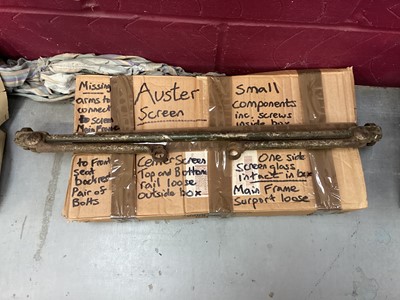 Missing
arms to
connect
to screen
Main Frame
to Front
seat
backrest
Pair of
Bolts
Auster
Screen
Center Screen
Top and Bottom
rail loose
outside box
Small
components
inc. screws
inside box
One side
Screen glass
intact in box
Main Frame
surport loose